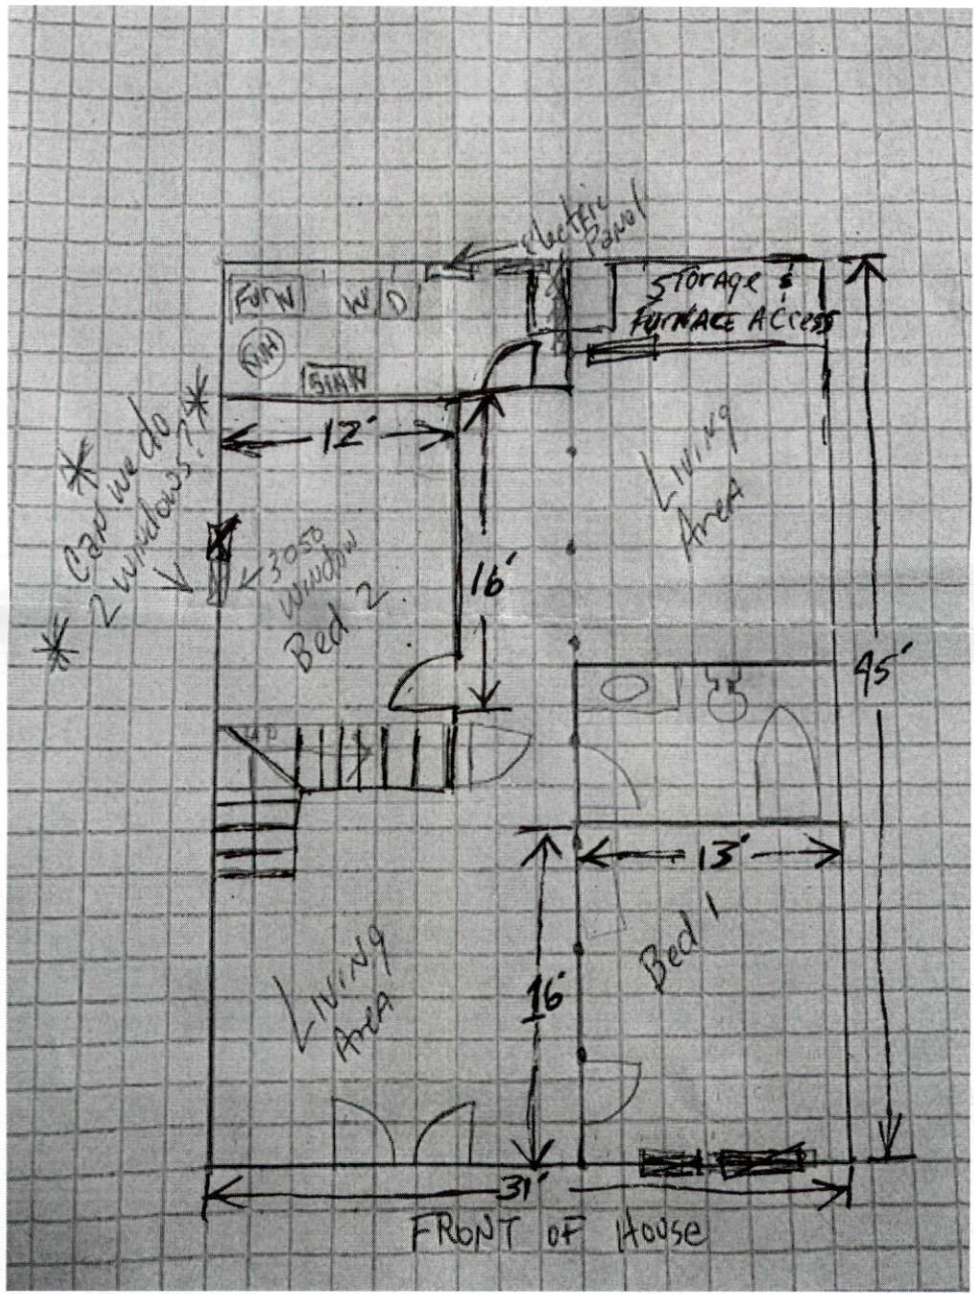 Electric
Panel
Furn
W
D
Storage &
Furnace Access
WH
SINK
12'
* Can we do
2 windows? *
*
3050
Window
Bed 2
16'
Living
Area
45'
UP
13'
Bed 1
16'
Living
Area
31'
FRONT OF HOUSE